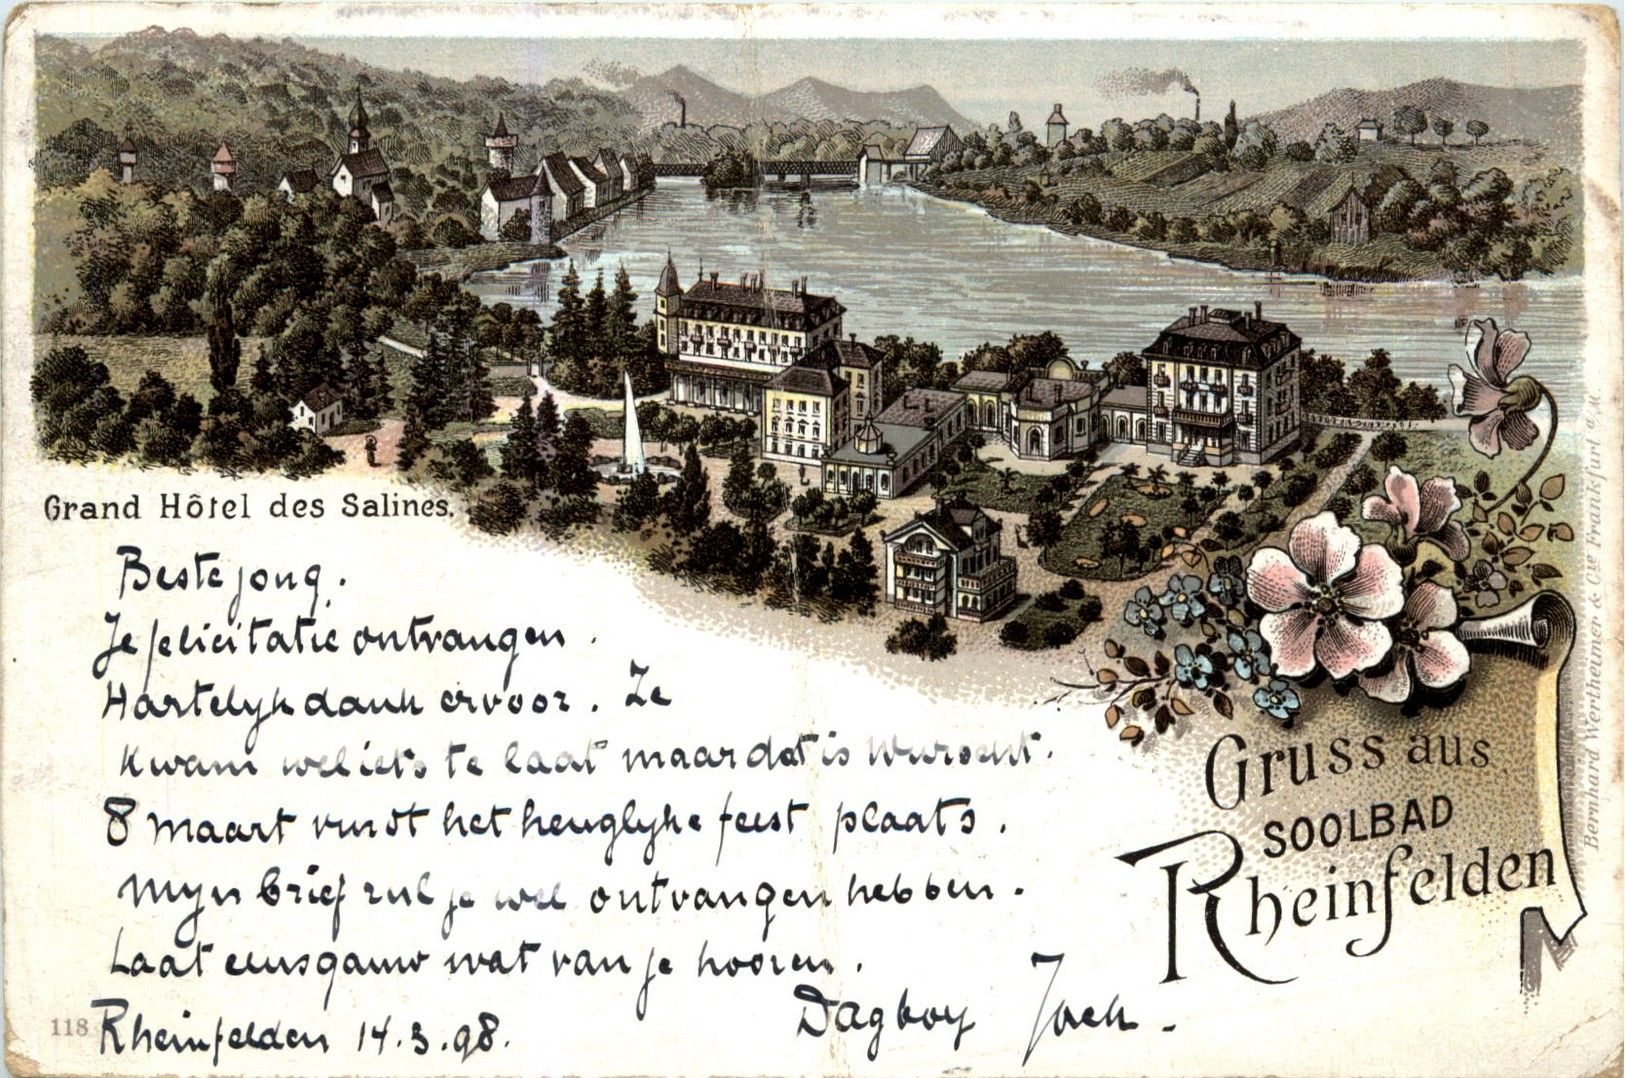 Grand Hôtel des Salines.
Beste jong.
Je felicitatie ontvangen.
Hartelyk dank ervoor. Ze
kwam wel iets te laat maar dat is Wurscht.
8 Maart vindt het heuglyke feest plaats.
Myn brief zul je wel ontvangen hebben.
Laat eens gauw wat van je hooren.
Dag boy Jack.
Rheinfelden 14.3.98.
118
Gruss aus
SOOLBAD
Rheinfelden
Bernhard Wertheimer & Cie Frankfurt a. M.